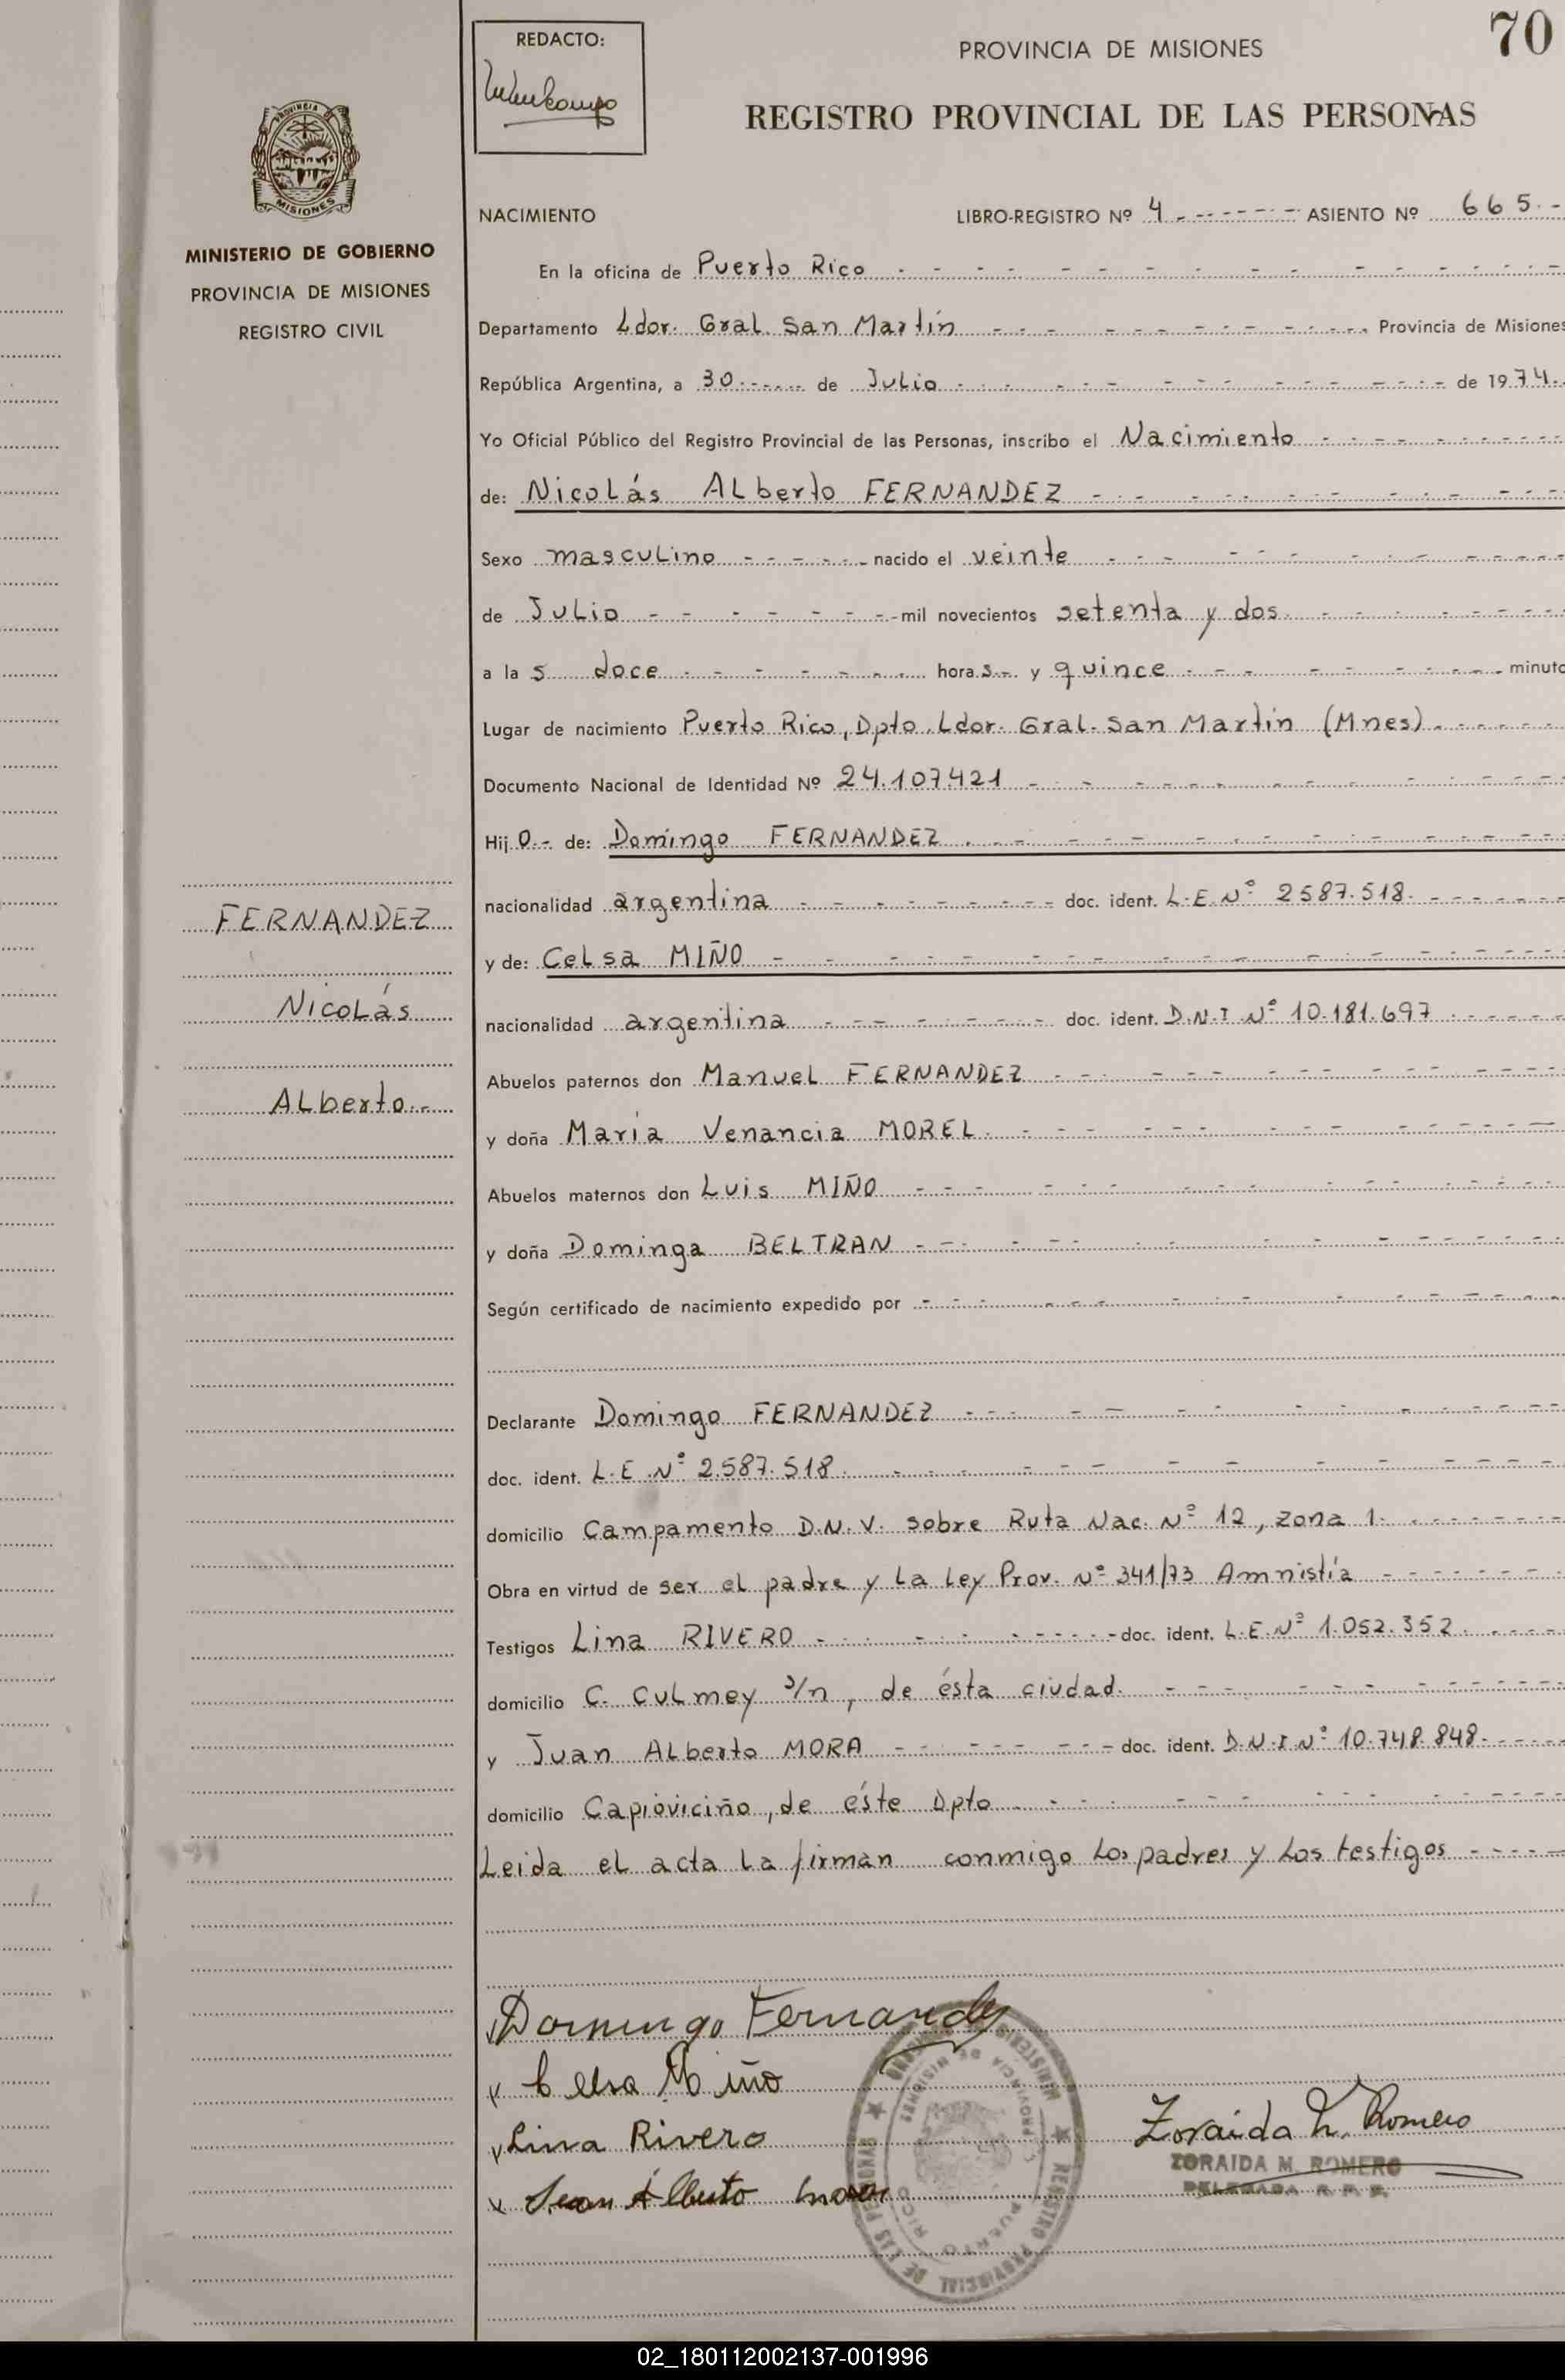 70
REDACTO:
PROVINCIA DE MISIONES
REGISTRO PROVINCIAL DE LAS PERSONAS
PROVINCIA
MISIONES
MINISTERIO DE GOBIERNO
PROVINCIA DE MISIONES
REGISTRO CIVIL
NACIMIENTO LIBRO-REGISTRO Nº 4 ASIENTO Nº 665
En la oficina de Puerto Rico
Departamento Ldor. Gral. San Martín Provincia de Misiones
República Argentina, a 30 de Julio de 1974.
Yo Oficial Público del Registro Provincial de las Personas, inscribo el Nacimiento
de: Nicolás Alberto FERNANDEZ
Sexo masculino nacido el veinte
de Julio mil novecientos setenta y dos
a las doce horas y quince minuto
Lugar de nacimiento Puerto Rico, Dpto. Ldor. Gral. San Martín (Mnes)
Documento Nacional de Identidad Nº 24.107.421
Hijo de: Domingo FERNANDEZ
nacionalidad argentina doc. ident. L.E. Nº 2587.518.
y de: Celsa MIÑO
nacionalidad argentina doc. ident. D.N.I. Nº 10.181.697
Abuelos paternos don Manuel FERNANDEZ
y doña María Venancia MOREL
Abuelos maternos don Luis MIÑO
y doña Dominga BELTRAN
Según certificado de nacimiento expedido por
Declarante Domingo FERNANDEZ
doc. ident. L.E. Nº 2.587.518
domicilio Campamento D.N.V. sobre Ruta Nac. Nº 12, zona 1.
Obra en virtud de ser el padre y la Ley Prov. Nº 341/73 Amnistía
Testigos Lina RIVERO doc. ident. L.E. Nº 1.052.352
domicilio C. Culmey s/n, de ésta ciudad.
y Juan Alberto MORA doc. ident. D.N.I. Nº 10.748.848
domicilio Capioviciño, de éste Dpto
Leida el acta la firman conmigo los padres y los testigos
FERNANDEZ
Nicolás
Alberto
Domingo Fernandez
Celsa Miño
Lina Rivero
Juan Alberto Mora
Zoraida M. Romero
ZORAIDA M. ROMERO
DELEGADA R. P. P.
REGISTRO PROVINCIAL DE LAS PERSONAS
PROVINCIA DE MISIONES
PUERTO RICO
02_180112002137-001996